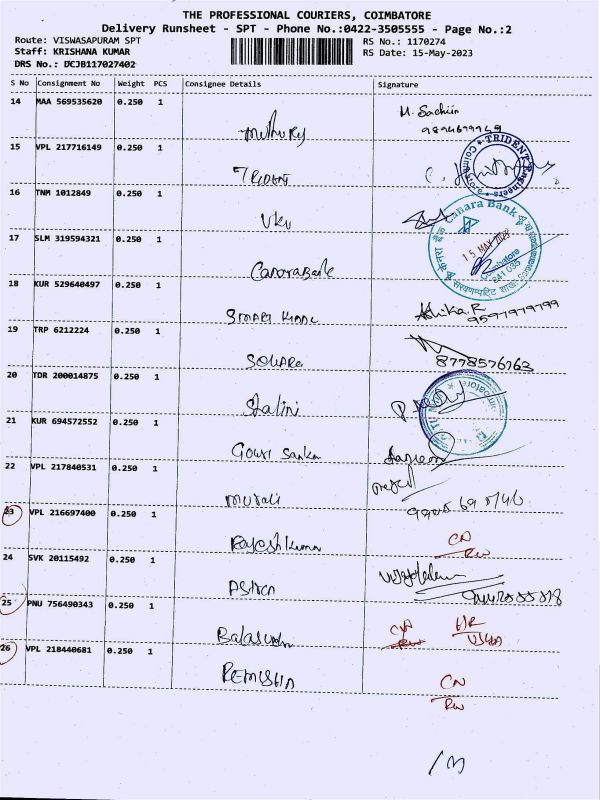 THE PROFESSIONAL COURIERS, COIMBATORE
Delivery Runsheet - SPT - Phone No.:0422-3505555 - Page No.:2
Route: VISWASAPURAM SPT
RS No.: 1170274
Staff: KRISHANA KUMAR
RS Date: 15-May-2023
DRS No.: DCJB117027402
S No Consignment No Weight PCS Consignee Details Signature
14 MAA 569535620 0.250 1
M. Sachin
15 VPL 217716149 0.250 1
TRIDENT
TRIDENT Engineers
16 TNM 1012849 0.250 1
VKV
Canara Bank
15 MAY 2023
Coimbatore
641 035
17 SLM 319594321 0.250 1
Canara Bank
18 KUR 529640497 0.250 1
Ashika.R
9597979799
19 TRP 6212224 0.250 1
SQUARE
8778576762
20 TDR 200014875 0.250 1
Shalini
21 KUR 694572552 0.250 1
Gowri Sankar
22 VPL 217840531 0.250 1
Murali
23 VPL 216697400 0.250 1
Rajesh Kumar
CN
RW
24 SVK 20115492 0.250 1
25 PNU 756490343 0.250 1
26 VPL 218440681 0.250 1
CN
RW